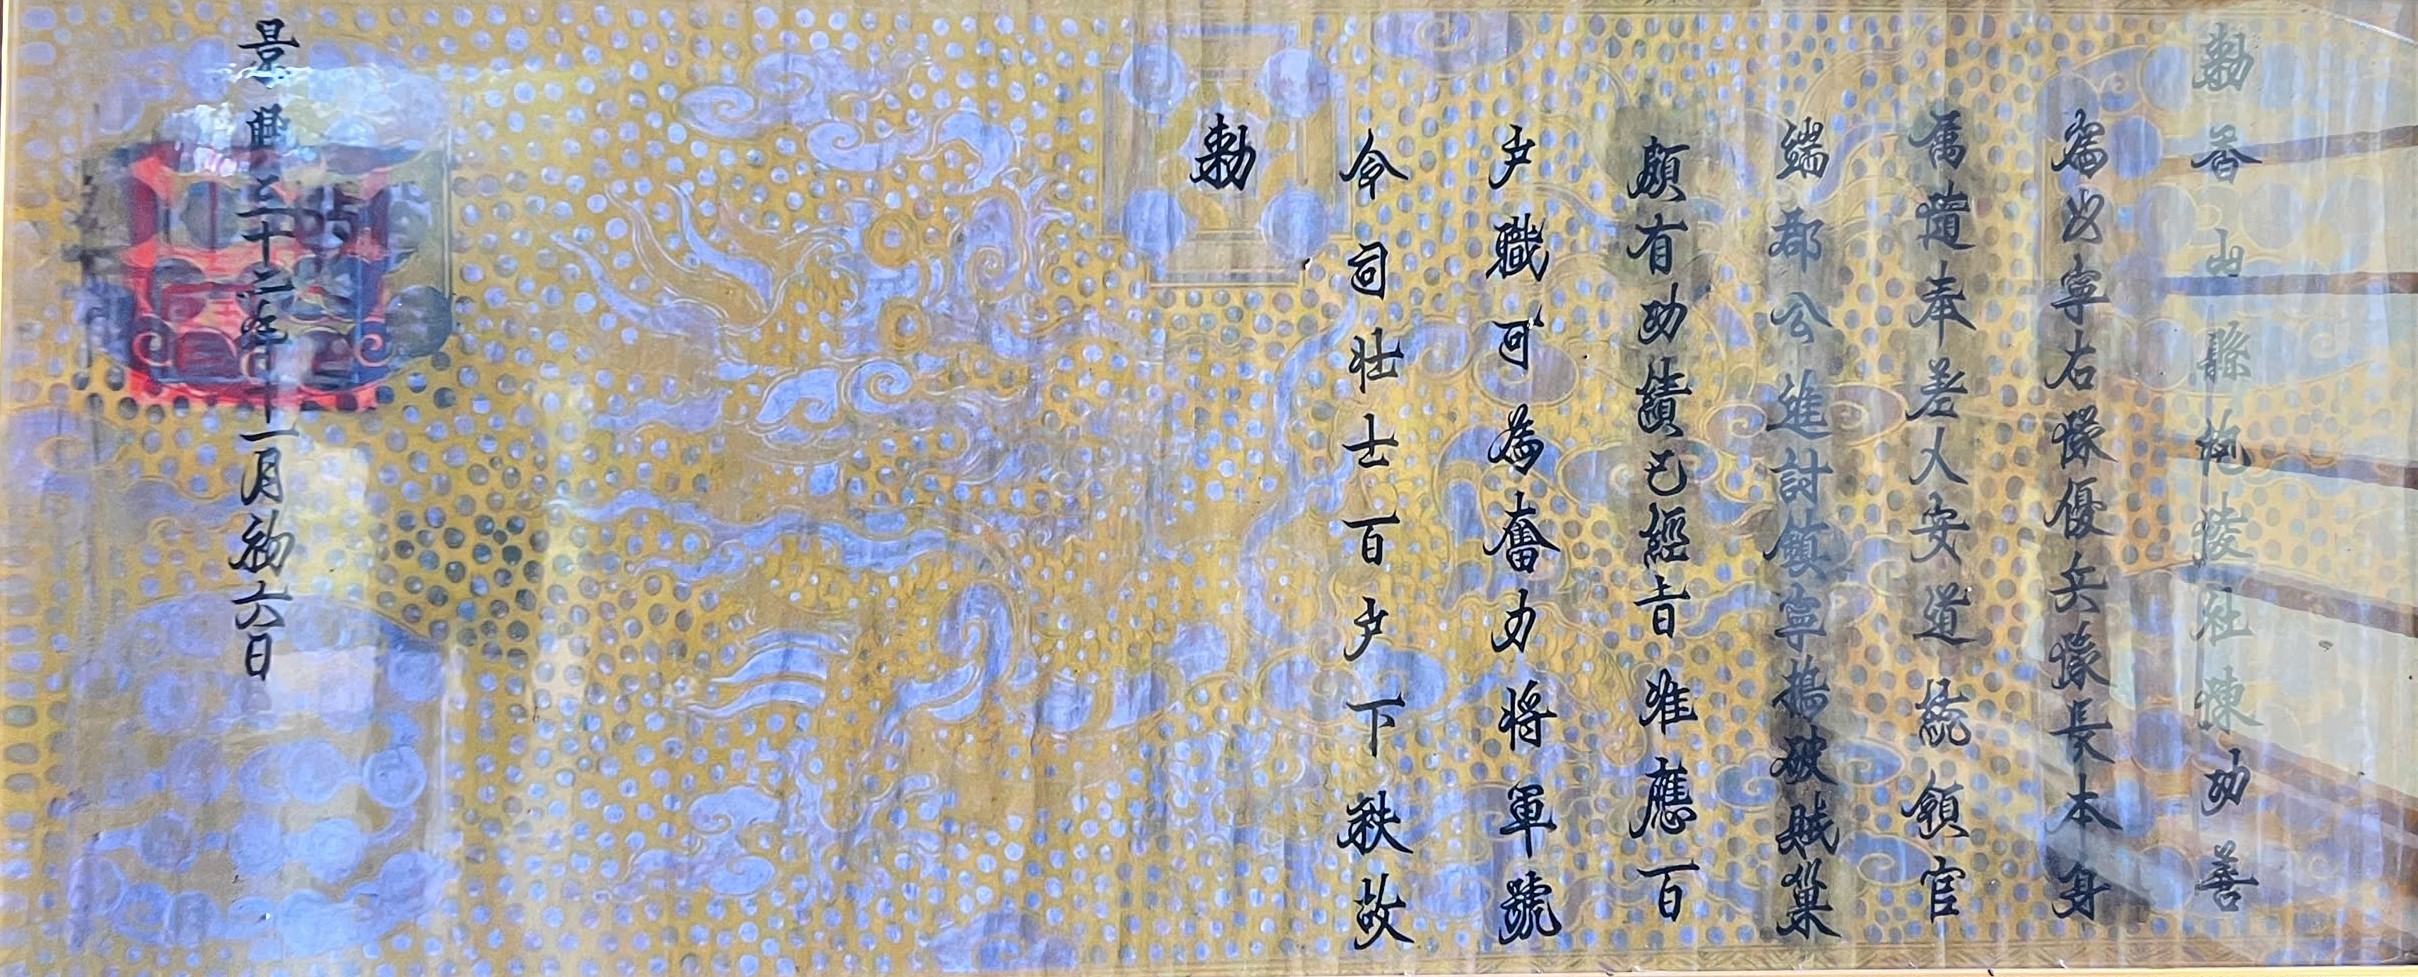 勅香山縣抱陵社陳功善
為由寧右隊優兵隊長本身
属道奉差人安道統領官
端郡公進討鎮寧搗破賊巢
頗有功績已經旨准應百
户職可為奮力将軍號
令司壮士百户下秩故
勅
景興三十二年十一月初六日